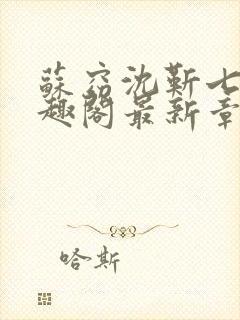 蘇窈沈靳七
趣閣最新章
哈斯